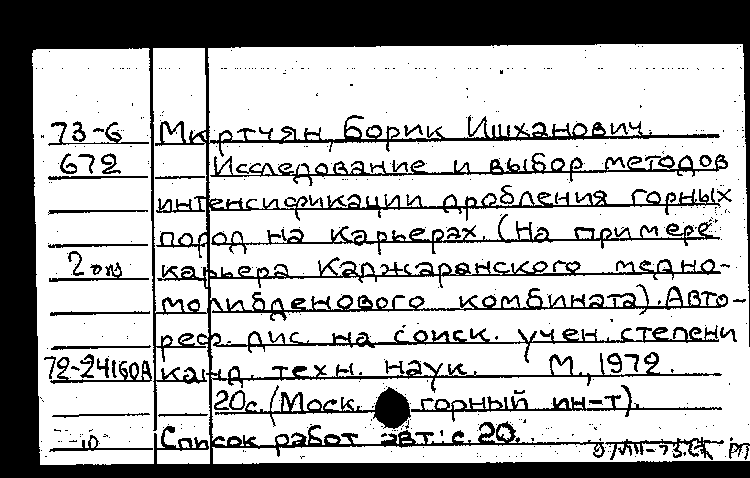 73-6 Мкртчян, Борик Ишханович.
672 Исследование и выбор методов
интенсификации дробления горных
пород на карьерах. (На примере
2 экз карьера Каджаранского медно-
молибденового комбината). Авто-
реф. дис. на соиск. учен. степени
72-24160А канд. техн. наук. М., 1972.
20с. (Моск. горный ин-т).
10 Список работ авт: с. 20.